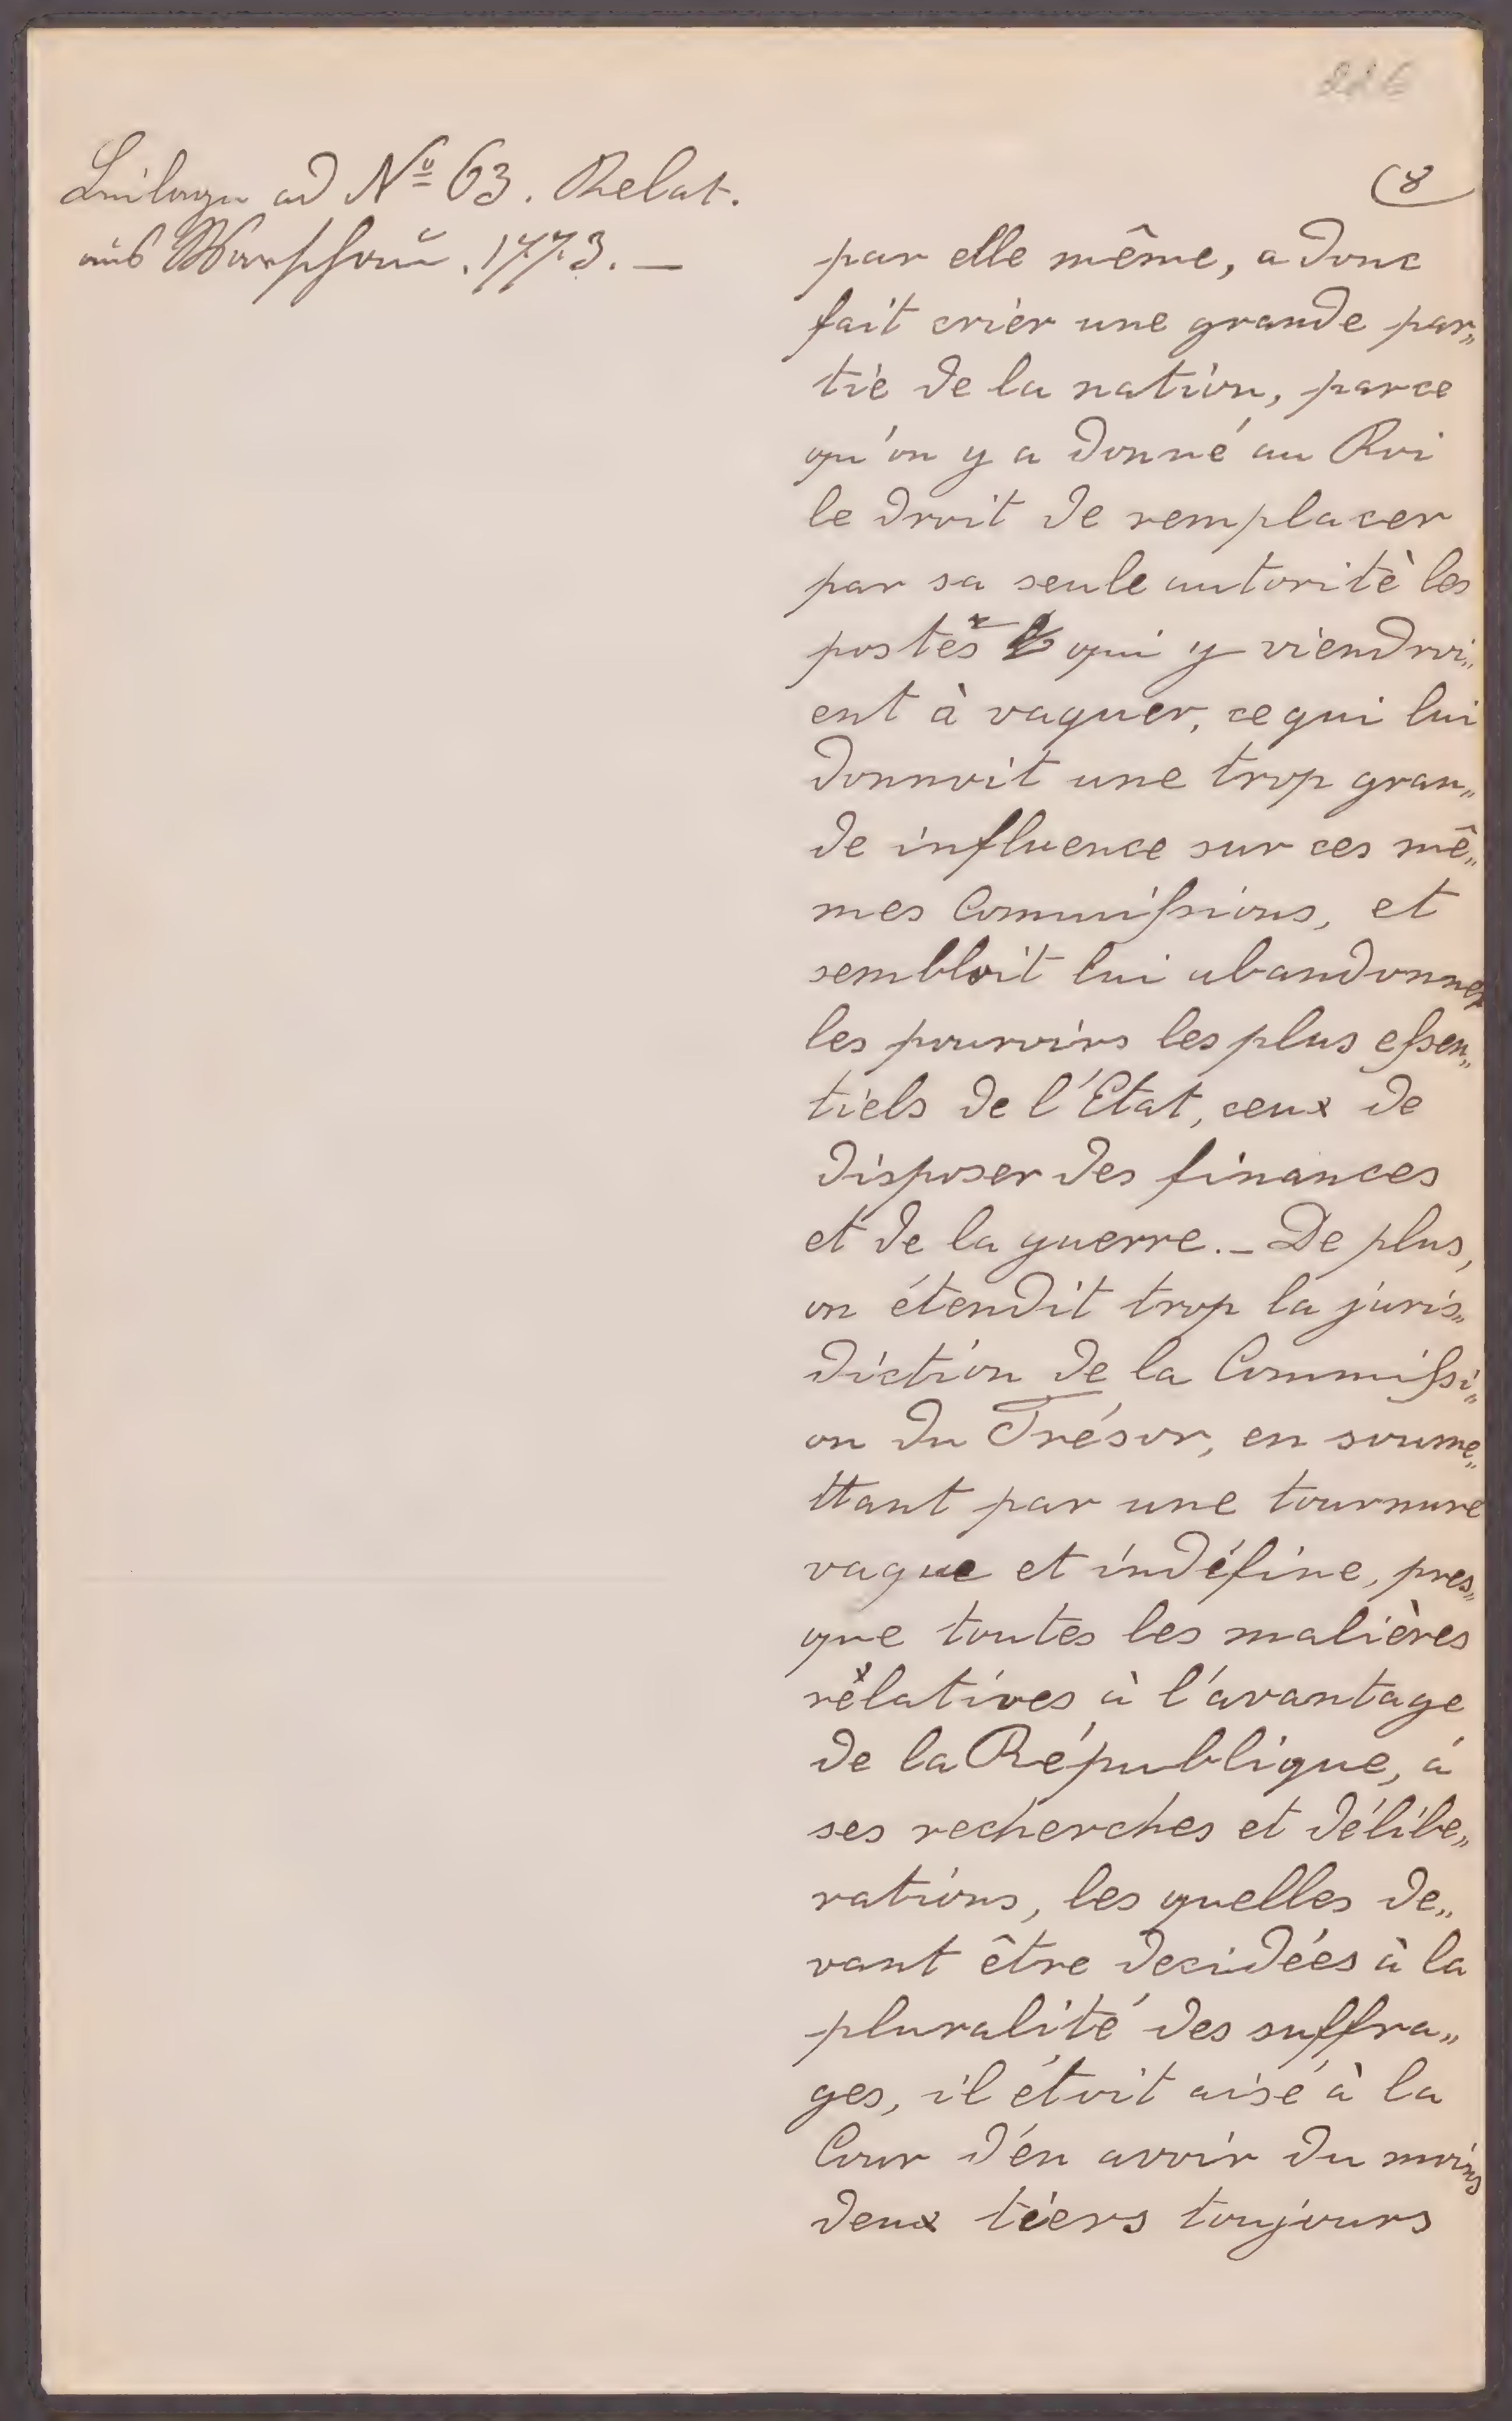 226
Beilage ad No 63. Relat.
aus Warschau. 1773. —
(8
par elle même, a donc
fait crièr une grande par„
tie de la nation, parce
qu'on y a donné au Roi
le droit de remplacer
par sa seule autoritè les
postes qui y viendroi„
ent à vaquer, ce qui lui
donnoit une trop gran„
de influence sur ces mê„
mes Commissions, et
sembloit lui abandonner
les pouvoirs les plus essen„
tiels de l'Etat, ceux de
disposer des finances
et de la guerre. — De plus,
on étendit trop la juris„
diction de la Commissi„
on du Trésor, en soume„
ttant par une tournure
vague et indéfine, pres„
que toutes les matières
relatives à l'avantage
de la République, á
ses recherches et délibe„
rations, les quelles de„
vant être decidées à la
pluralité des suffra„
ges, il étoit aisé à la
Cour d'én avoir du moins
deux tiers toujours